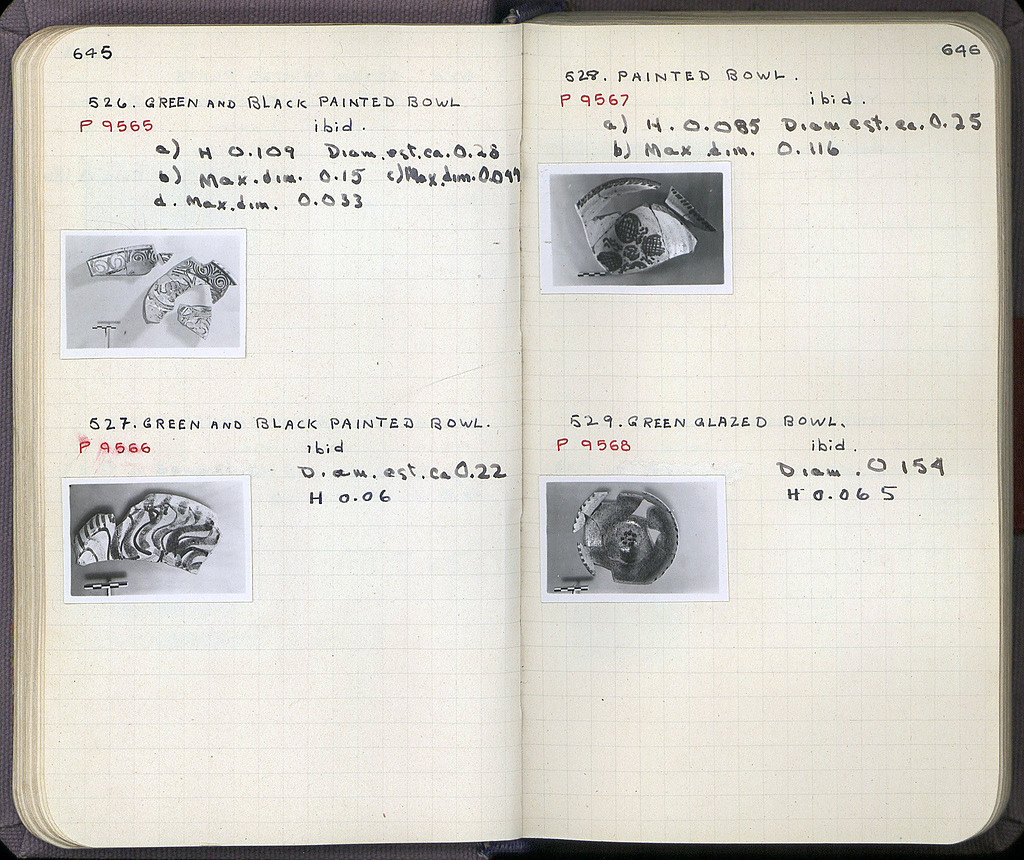 645
526. GREEN AND BLACK PAINTED BOWL
P 9565 ibid.
a) H 0.109 Diam. est. ca. 0.28
b) Max. dim. 0.15 c) Max. dim. 0.099
d. Max. dim. 0.033
527. GREEN AND BLACK PAINTED BOWL.
P 9566 ibid
Diam. est. ca 0.22
H 0.06
646
528. PAINTED BOWL.
P 9567 ibid.
a) H. 0.085 Diam est. ca. 0.25
b) Max dim. 0.116
529. GREEN GLAZED BOWL.
P 9568 ibid.
Diam. 0 154
H 0.065